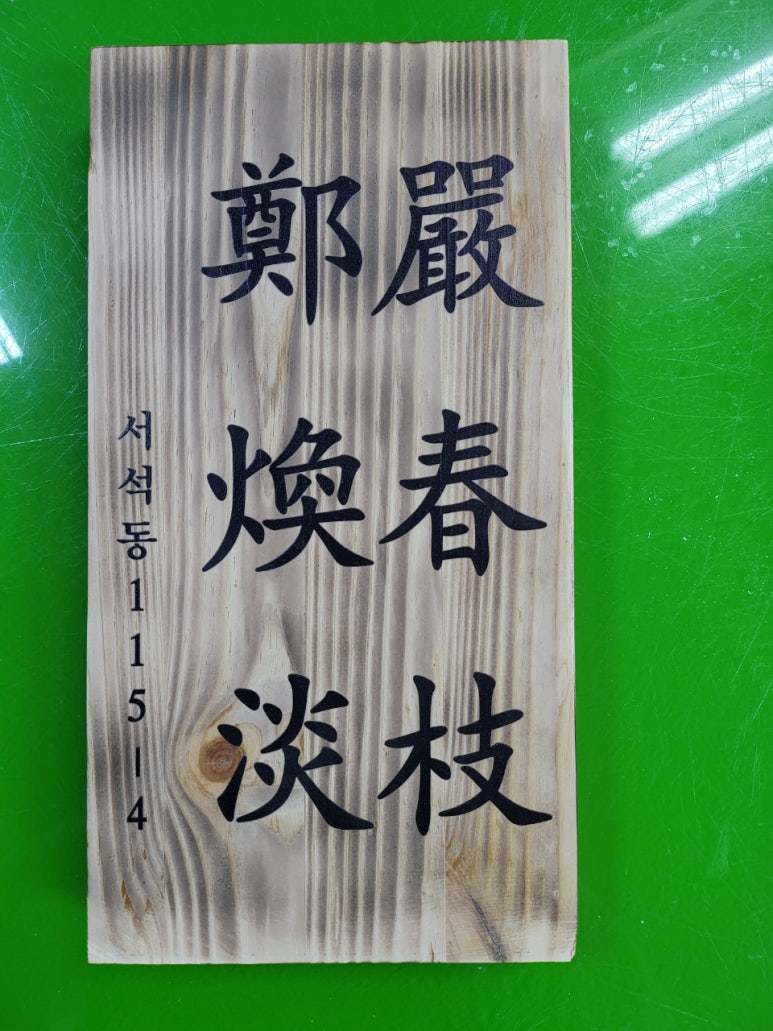 嚴春枝
鄭煥淡
서석동115-4